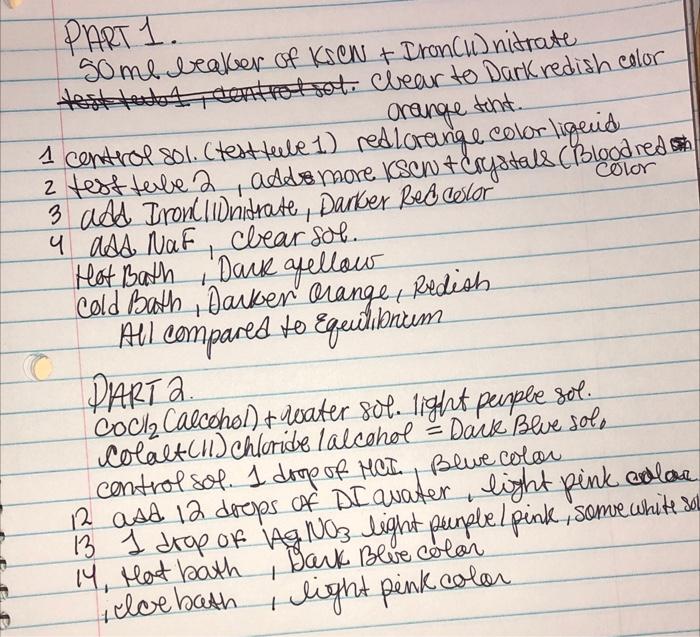 PART 1.
50ml beaker of KSCN + Iron(II) nitrate
test tube 1, control sol. Clear to Dark redish color
orange tint.
1 control sol. (test tube 1) red/orange color liquid
2 test tube 2, adds more KSCN + Crystals (Blood red
color
3 add Iron(II) nitrate, Darker Red color
4 add NaF, clear sol.
Hot Bath, Dark yellow
Cold Bath, Darker Orange, Redish
All compared to Equilibrium
PART 2.
COCl2 (alcohol) + water sol. light purple sol.
Cobalt(II) chloride/alcohol = Dark Blue sol,
control sol. 1 drop of HCI, Blue color
12 add 12 drops of DI water, light pink color
13 1 drop of AgNO3 light purple/pink, some white sol
14, Hot bath, Dark Blue color
, Ice bath, light pink color